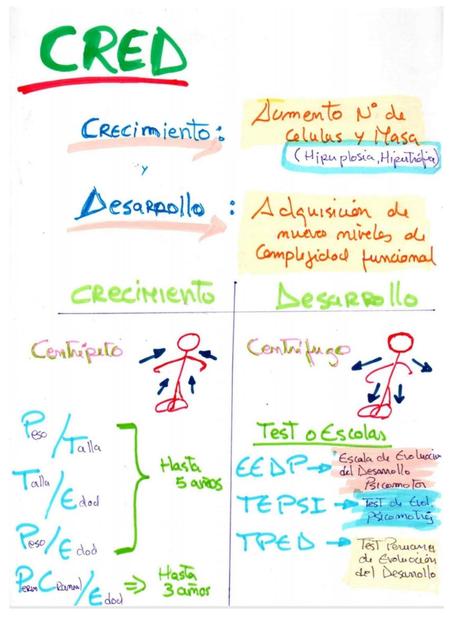 CRED
Crecimiento:
Aumento Nº de
celulas y Masa
(Hiperplosia, Hipertrofia)
y
Desarrollo :
Adquisición de
nuevo niveles de
Complejidad funcional
CRECIMIENTO
Desarrollo
Centrípeto
Centrífugo
Peso/Talla
Talla/Edad
Peso/Edad
Hasta
5 años
Perim Craneal/Edad => Hasta
3 años
Test o Escalas
EEDP → Escala de Evolucion
del Desarrollo
Psicomotor
TEPSI → Test de Evol
psicomotriz
TPED → Test Peruano
de Evolución
del Desarrollo